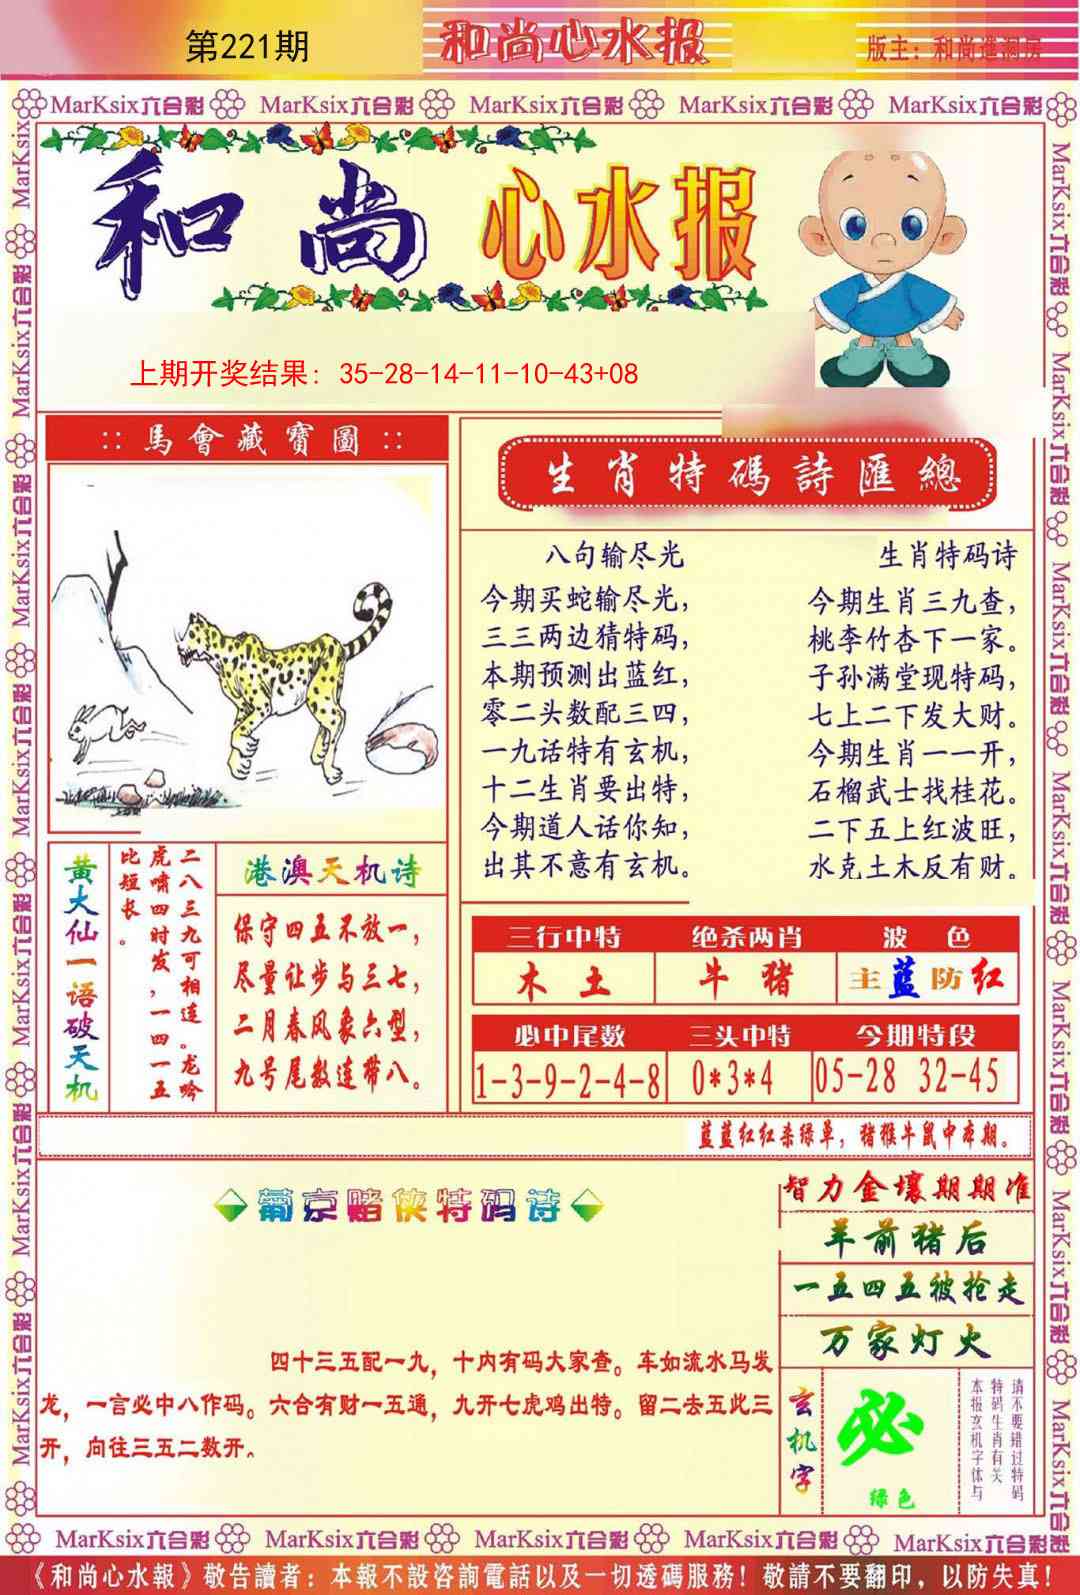 第221期
和尚心水报
版主：和尚進洞房
MarKsix六合彩 MarKsix六合彩 MarKsix六合彩 MarKsix六合彩 MarKsix六合彩
和尚 心水报
上期开奖结果: 35-28-14-11-10-43+08
:: 馬會藏寶圖 ::
生肖特碼詩匯總
八句输尽光
今期买蛇输尽光，
三三两边猜特码，
本期预测出蓝红，
零二头数配三四，
一九话特有玄机，
十二生肖要出特，
今期道人话你知，
出其不意有玄机。
生肖特码诗
今期生肖三九查，
桃李竹杏下一家。
子孙满堂现特码，
七上二下发大财。
今期生肖一一开，
石榴武士找桂花。
二下五上红波旺，
水克土木反有财.
黄大仙一语破天机
二八三九可相连。龙吟
虎啸四时发，一四一五
比短长。
港澳天机诗
保守四五不放一，
尽量让步与三七，
二月春风象六型，
九号尾数连带八。
三行中特 绝杀两肖 波色
木土 牛猪 主蓝防红
必中尾数 三头中特 今期特段
1-3-9-2-4-8 0*3*4 05-28 32-45
蓝蓝红红杀绿单，猪猴牛鼠中本期。
葡京赌侠特码诗
四十三五配一九，十内有码大家查。车如流水马发
龙，一言必中八作码。六合有财一五通，九开七虎鸡出特。留二去五此三
开，向往三五二数开。
智力金壤期期准
羊前猪后
一五四五被抢走
万家灯火
玄机字
必
绿色
请不要错过特码
特码生肖有关
本报玄机字体与
MarKsix六合彩 MarKsix六合彩 MarKsix六合彩 MarKsix六合彩 MarKsix六合彩
《和尚心水報》敬告讀者：本報不設咨詢電話以及一切透碼服務！敬請不要翻印，以防失真！